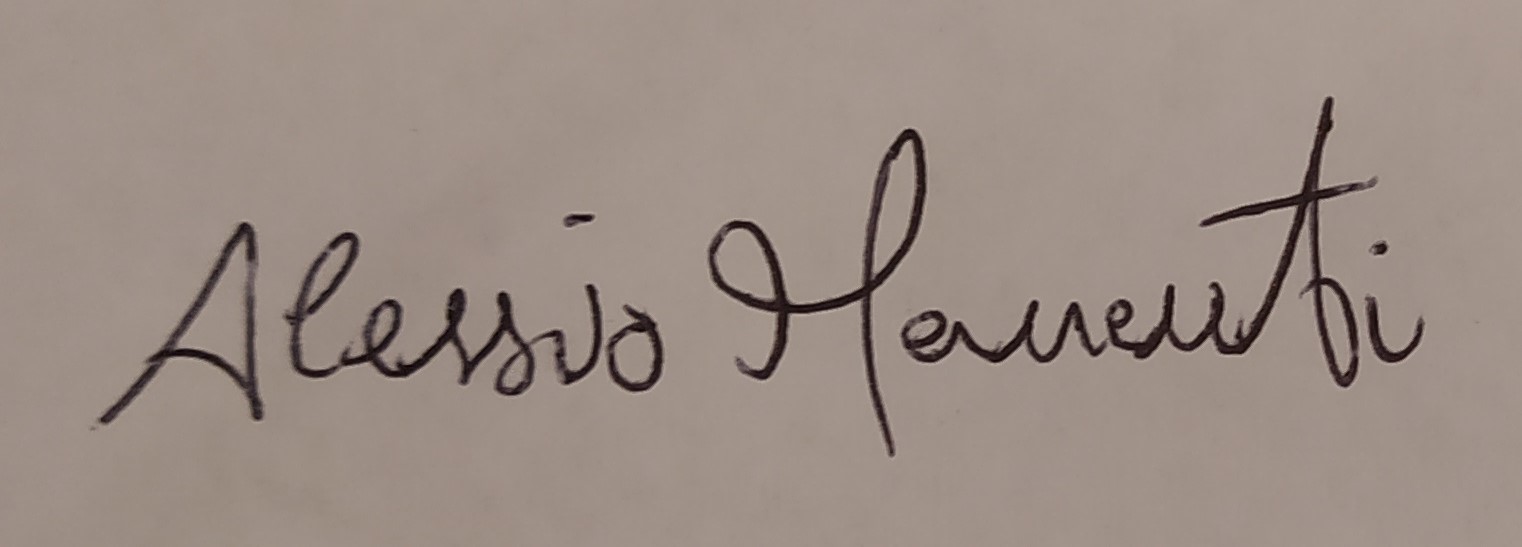 Alessio Manenti